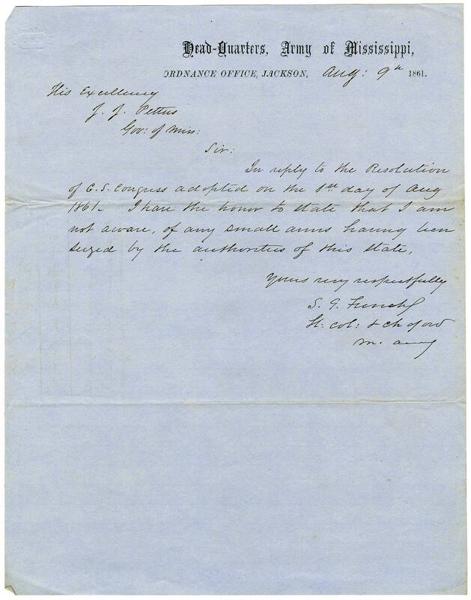 Head-Quarters, Army of Mississippi,
ORDNANCE OFFICE, JACKSON, Aug: 9th 1861.
His Excellency
J. J. Pettus
Gov: of Miss:
Sir:
In reply to the Resolution
of C. S. Congress adopted on the 1st day of Aug
1861. I have the honor to state that I am
not aware, of any small arms having been
seized by the authorities of this state,
Yours very respectfully
S. G. French
Lt: col: & ch of ord
m. army